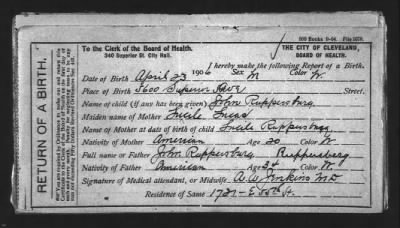 500 Books 9-04. File 1678.
To the Clerk of the Board of Health.
340 Superior St. City Hall.
THE CITY OF CLEVELAND,
BOARD OF HEALTH.
RETURN OF A BIRTH.
I hereby make the following Report of a Birth.
Date of Birth April 23 1906 Sex M Color W.
Place of Birth 5600 Superior Ave Street.
Name of child (if any has been given) John Ruppersburg.
Maiden name of Mother Lucile
Name of Mother at date of birth of child Lucile Ruppersburg
Nativity of Mother American Age 20 Color W
Full name of Father John Ruppersburg Ruppersberg
Nativity of Father American Age 34 Color W.
Signature of Medical attendant, or Midwife A.W. Jenkins M.D
Residence of Same 1721- E 55th St.